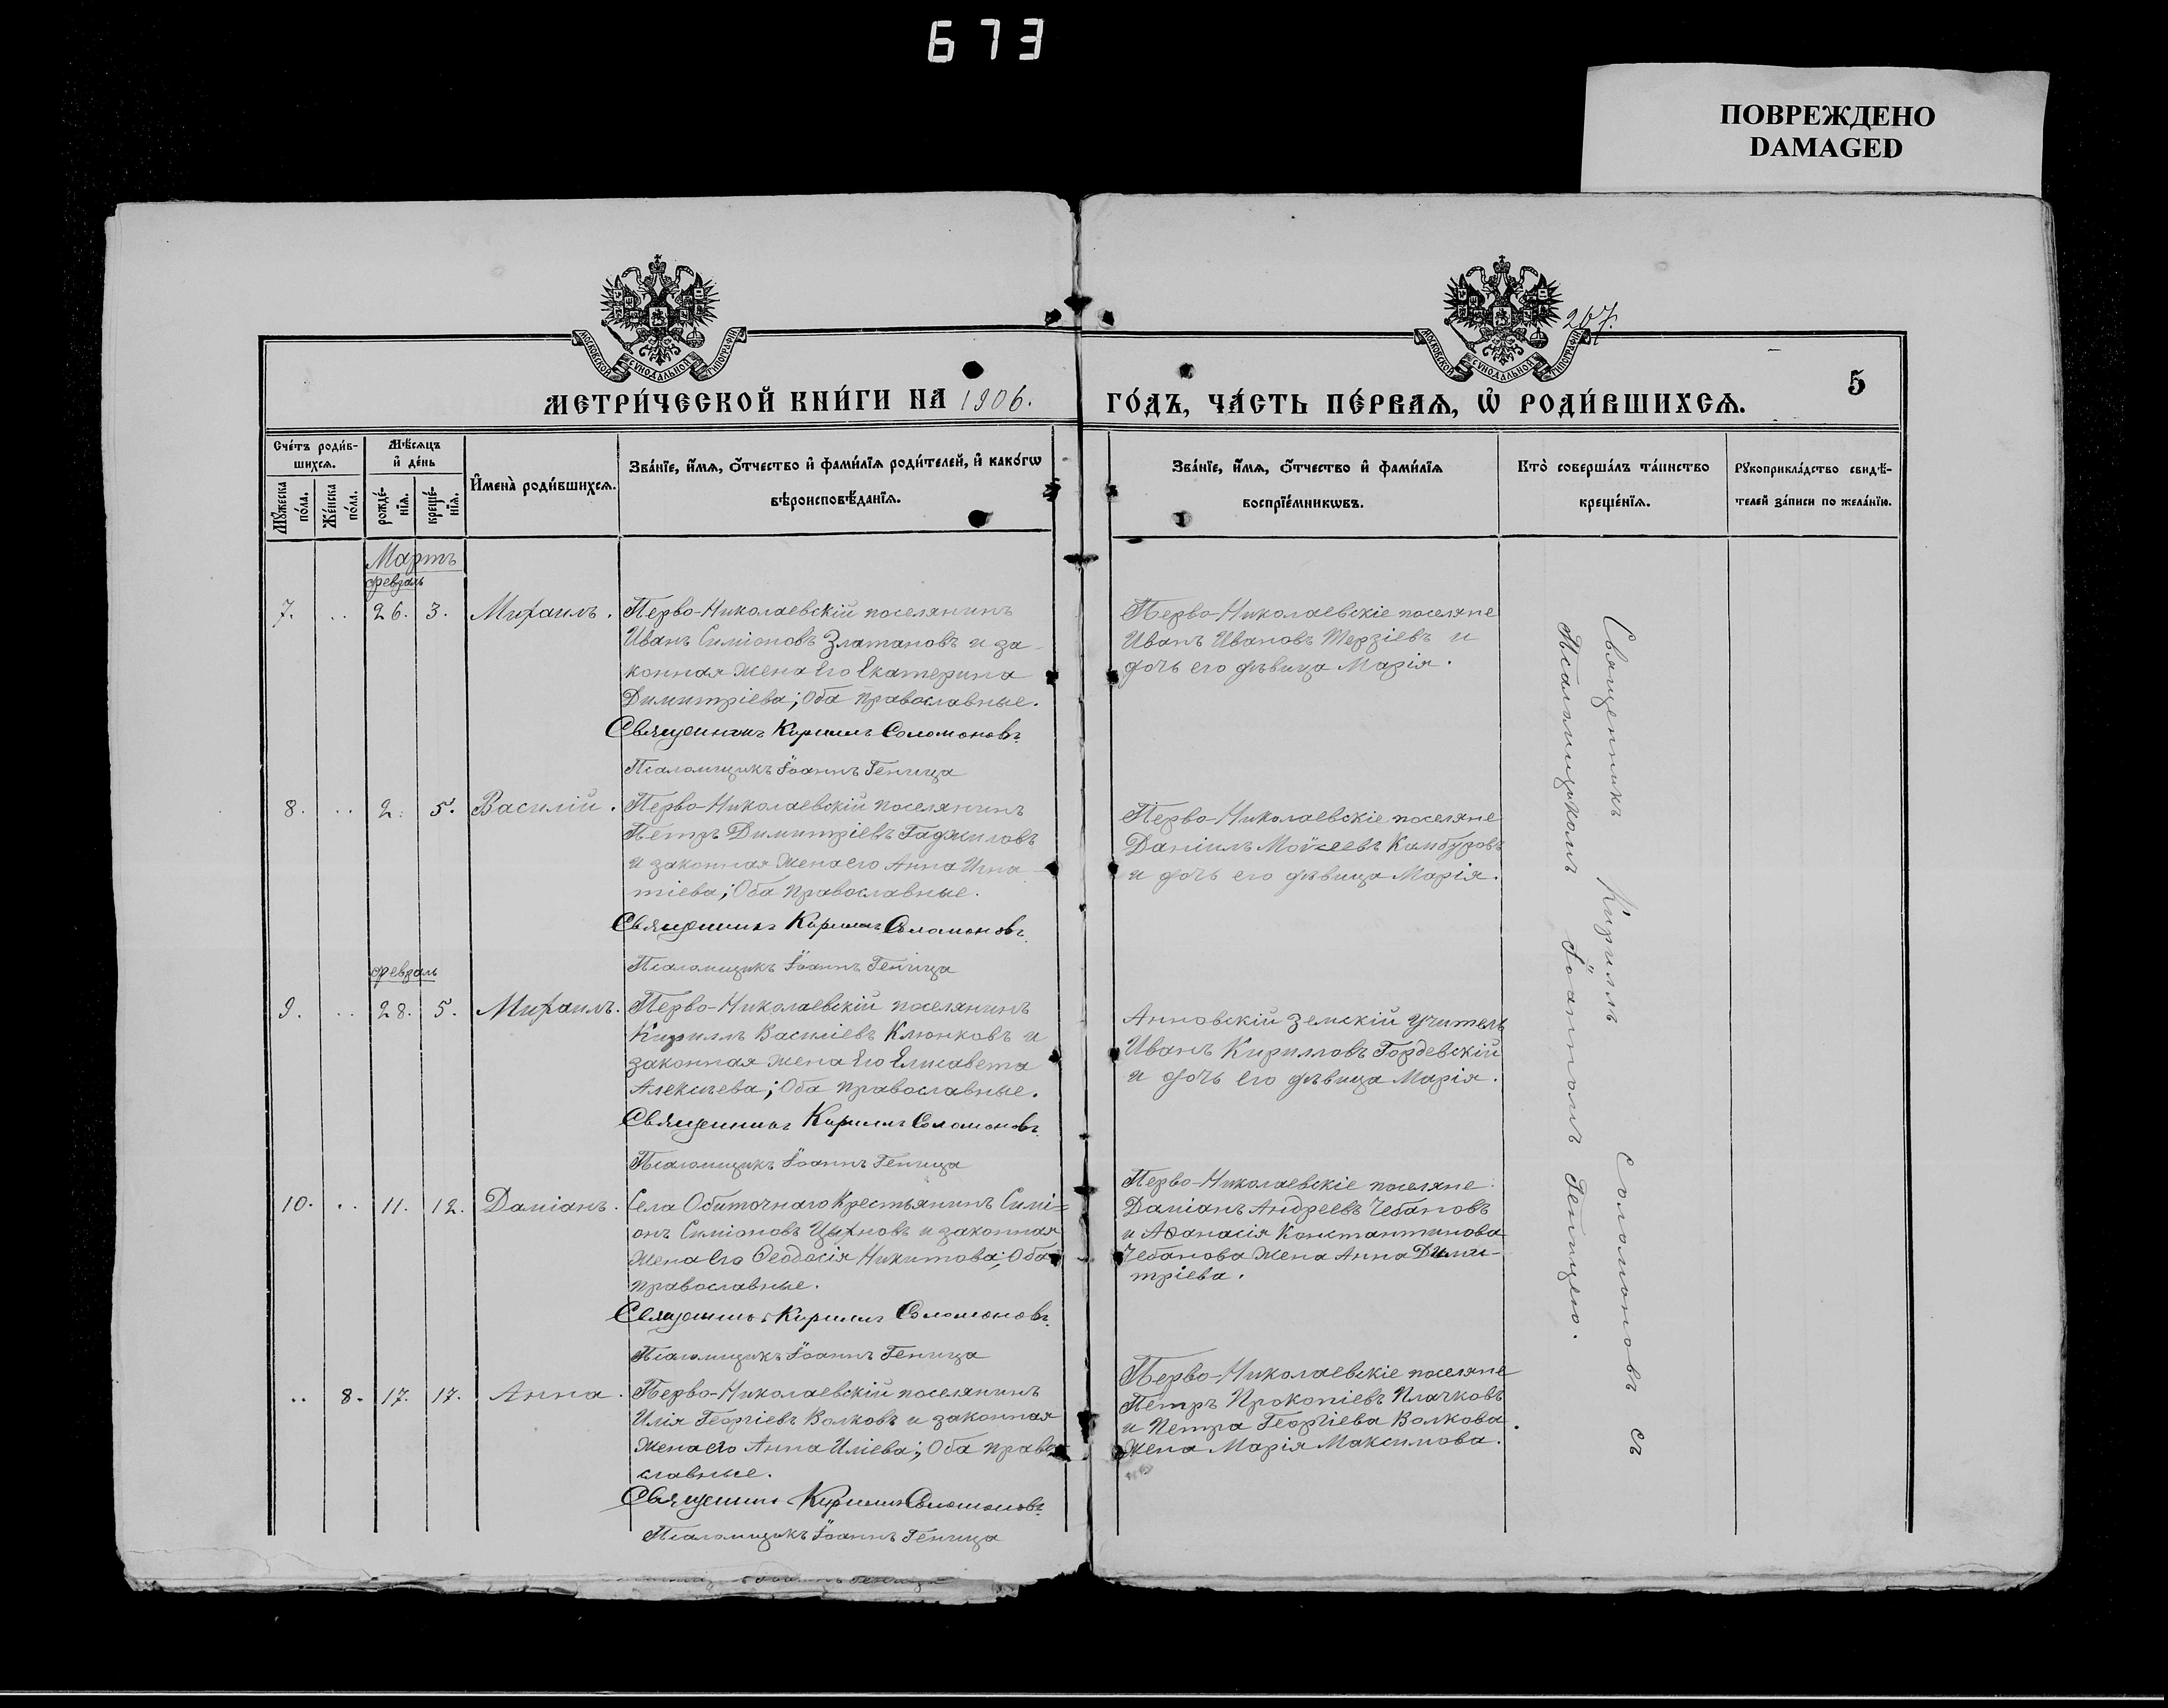 673
ПОВРЕЖДЕНО
DAMAGED
267.
МОСКОВСКОЙ СѴНОДАЛЬНОЙ ТИПОГРАФІИ
МОСКОВСКОЙ СѴНОДАЛЬНОЙ ТИПОГРАФІИ
МЕТРИ́ЧЕСКОЙ КНИ́ГИ НА 1906.
ГО́ДЪ, ЧА́СТЬ ПЕ́РВАЯ, Ѡ РОДИ́ВШИХСЯ.
5
Сче́тъ роди́в-
шихся.
Мꙋжеска
по́ла.
Же́нска
по́ла.
Мѣ́сяцъ
и҆ де́нь
рожде́-
нїя.
креще́-
нїя.
И҆мена̀ роди́вшихся.
Зва́нїе, и҆́мя, ѻ҆́тчество и҆ фами́лїя роди́телей, и҆ како́гѡ
вѣроисповѣ́данїя.
Зва́нїе, и҆́мя, ѻ҆́тчество и҆ фами́лїя
воспрїе́мникѡвъ.
Кто̀ соверша́лъ та́инство
креще́нїя.
Рꙋкоприкла́дство свидѣ́-
телей за́писи по жела́нїю.
Мартъ
февраль
7. .. 26. 3. Михаилъ.
Перво-Николаевскій поселянинъ
Иванъ Симіоновъ Златановъ и за-
конная жена его Екатерина
Димитріева; Оба православные.
Священникъ Кириллъ Соломоновъ.
Псаломщикъ Іоаннъ Геница
Перво-Николаевскіе поселяне
Иванъ Ивановъ Терзіевъ и
дочь его дѣвица Марія.
8. .. 2. 5. Василій.
Перво-Николаевскій поселянинъ
Петръ Димитріевъ Гаджиловъ
и законная жена его Анна Игна-
тіева; Оба православные.
Священникъ Кириллъ Соломоновъ.
Псаломщикъ Іоаннъ Геница
Перво-Николаевскіе поселяне
Даніилъ Моѵсеевъ Камбуровъ
и дочь его дѣвица Марія.
февраль
9. .. 28. 5. Михаилъ.
Перво-Николаевскій поселянинъ
Кириллъ Василіевъ Клюнковъ и
законная жена его Елисавета
Алексѣева; Оба православные.
Священникъ Кириллъ Соломоновъ.
Псаломщикъ Іоаннъ Геница
Анновскій земскій учитель
Иванъ Кирилловъ Гордевскій
и дочь его дѣвица Марія.
10. .. 11. 12. Даміанъ.
Села Обиточнаго Крестьянинъ Симі=
онъ Симіоновъ Цыхновъ и законная
жена его Ѳеодосія Никитова; Оба
православные.
Священникъ Кириллъ Соломоновъ.
Псаломщикъ Іоаннъ Геница
Перво-Николаевскіе поселяне:
Даміанъ Андреевъ Чебановъ
и Аѳанасія Константинова
Чебанова жена Анна Дими-
тріева.
.. 8. 17. 17. Анна.
Перво-Николаевскій поселянинъ
Илія Георгіевъ Волковъ и законная
жена его Анна Иліева; Оба право-
славные.
Священникъ Кириллъ Соломоновъ.
Псаломщикъ Іоаннъ Геница
Перво-Николаевскіе поселяне
Петръ Прокопіевъ Плачковъ
и Петра Георгіева Волкова.
жена Марія Максимова.
Священникъ Кириллъ Соломоновъ съ
Псаломщикомъ Іоанномъ Геницею.